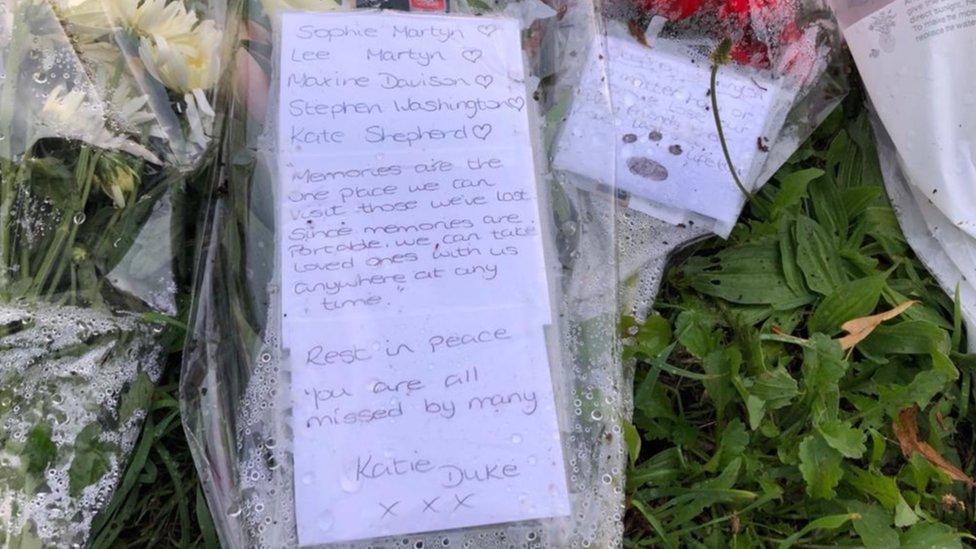 Sophie Martyn ♡
Lee Martyn ♡
Maxine Davison ♡
Stephen Washington ♡
Kate Shepherd ♡
"Memories are the
one place we can
visit those we've lost
Since memories are
Portable, we can take
loved ones with us
anywhere at any
time."
Rest in peace
You are all
missed by many
Katie Duke
x x x